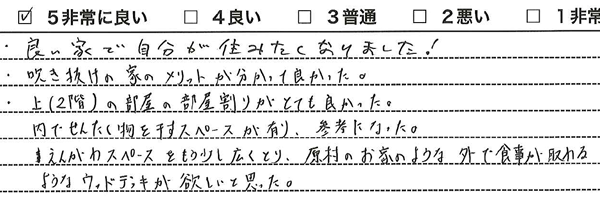 ☑ 5非常に良い □ 4良い □ 3普通 □ 2悪い □ 1非常
・良い家で自分が住みたくなりました!
・吹き抜けの家のメリットが分かって良かった。
・上(2階)の部屋の部屋割りがとても良かった。
内でせんたく物を干すスペースが有り、参考になった。
えんがわスペースをもう少し広くとり、原村のお家のような外で食事が取れる
ようなウッドデッキが欲しいと思った。